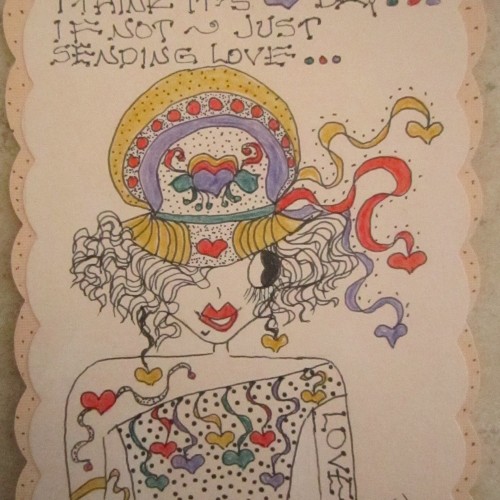 I THINK IT'S DAY...
IF NOT ~ JUST
SENDING LOVE...
LOVE